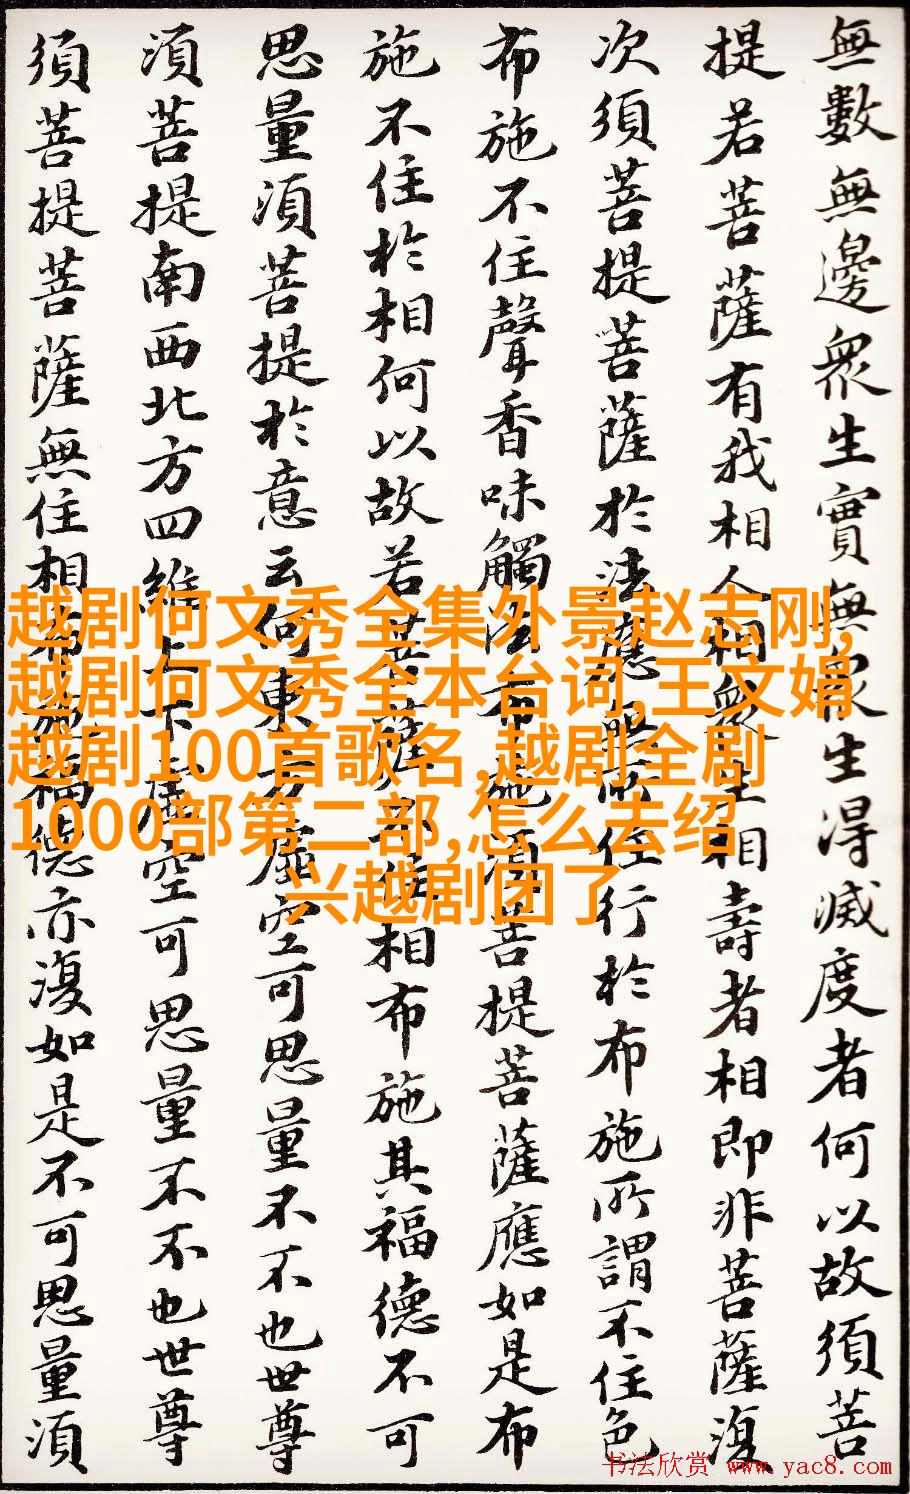 無數無邊眾生實無眾生得滅度者何以故須菩
提若菩薩有我相人相眾生相壽者相即非菩薩復
次須菩提菩薩於法應無所住行於布施所謂不住色
布施不住聲香味觸法布施須菩提菩薩應如是布
施不住於相何以故若菩薩不住相布施其福德不可
思量須菩提於意云何東方虛空可思量不不也世尊
須菩提南西北方四維上下虛空可思量不不也世尊
須菩提菩薩無住相布施福德亦復如是不可思量須
越剧何文秀全集外景赵志刚,
越剧何文秀全本台词,王文娟
越剧100首歌名,越剧全剧
1000部第二部,怎么去绍
兴越剧团了
书法欣赏 www.yac8.com